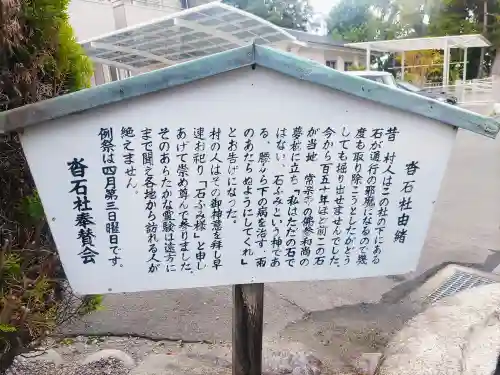 沓石社由緒
昔　村人はこの社の下にある
石が通行の邪魔になるので幾
度も取り除こうとしたがどう
しても掘り出せませんでした。
今から百五十年ほど前この石
が当地　常楽寺の佛参和尚の
夢枕に立ち「私はただの石で
はない、石ふみという神であ
る。膝から下の病を治す。雨
のあたらぬようにしてくれ」
とお告げになった。
村の人はその御神意を拝し早
速お祀り「石ふみ様」と申し
あげて崇め尊んで参りました。
そのあらたかな霊験は遠方に
まで聞え各地から訪れる人が
絶えません。
例祭は四月第三日曜日です。
沓石社奉賛会